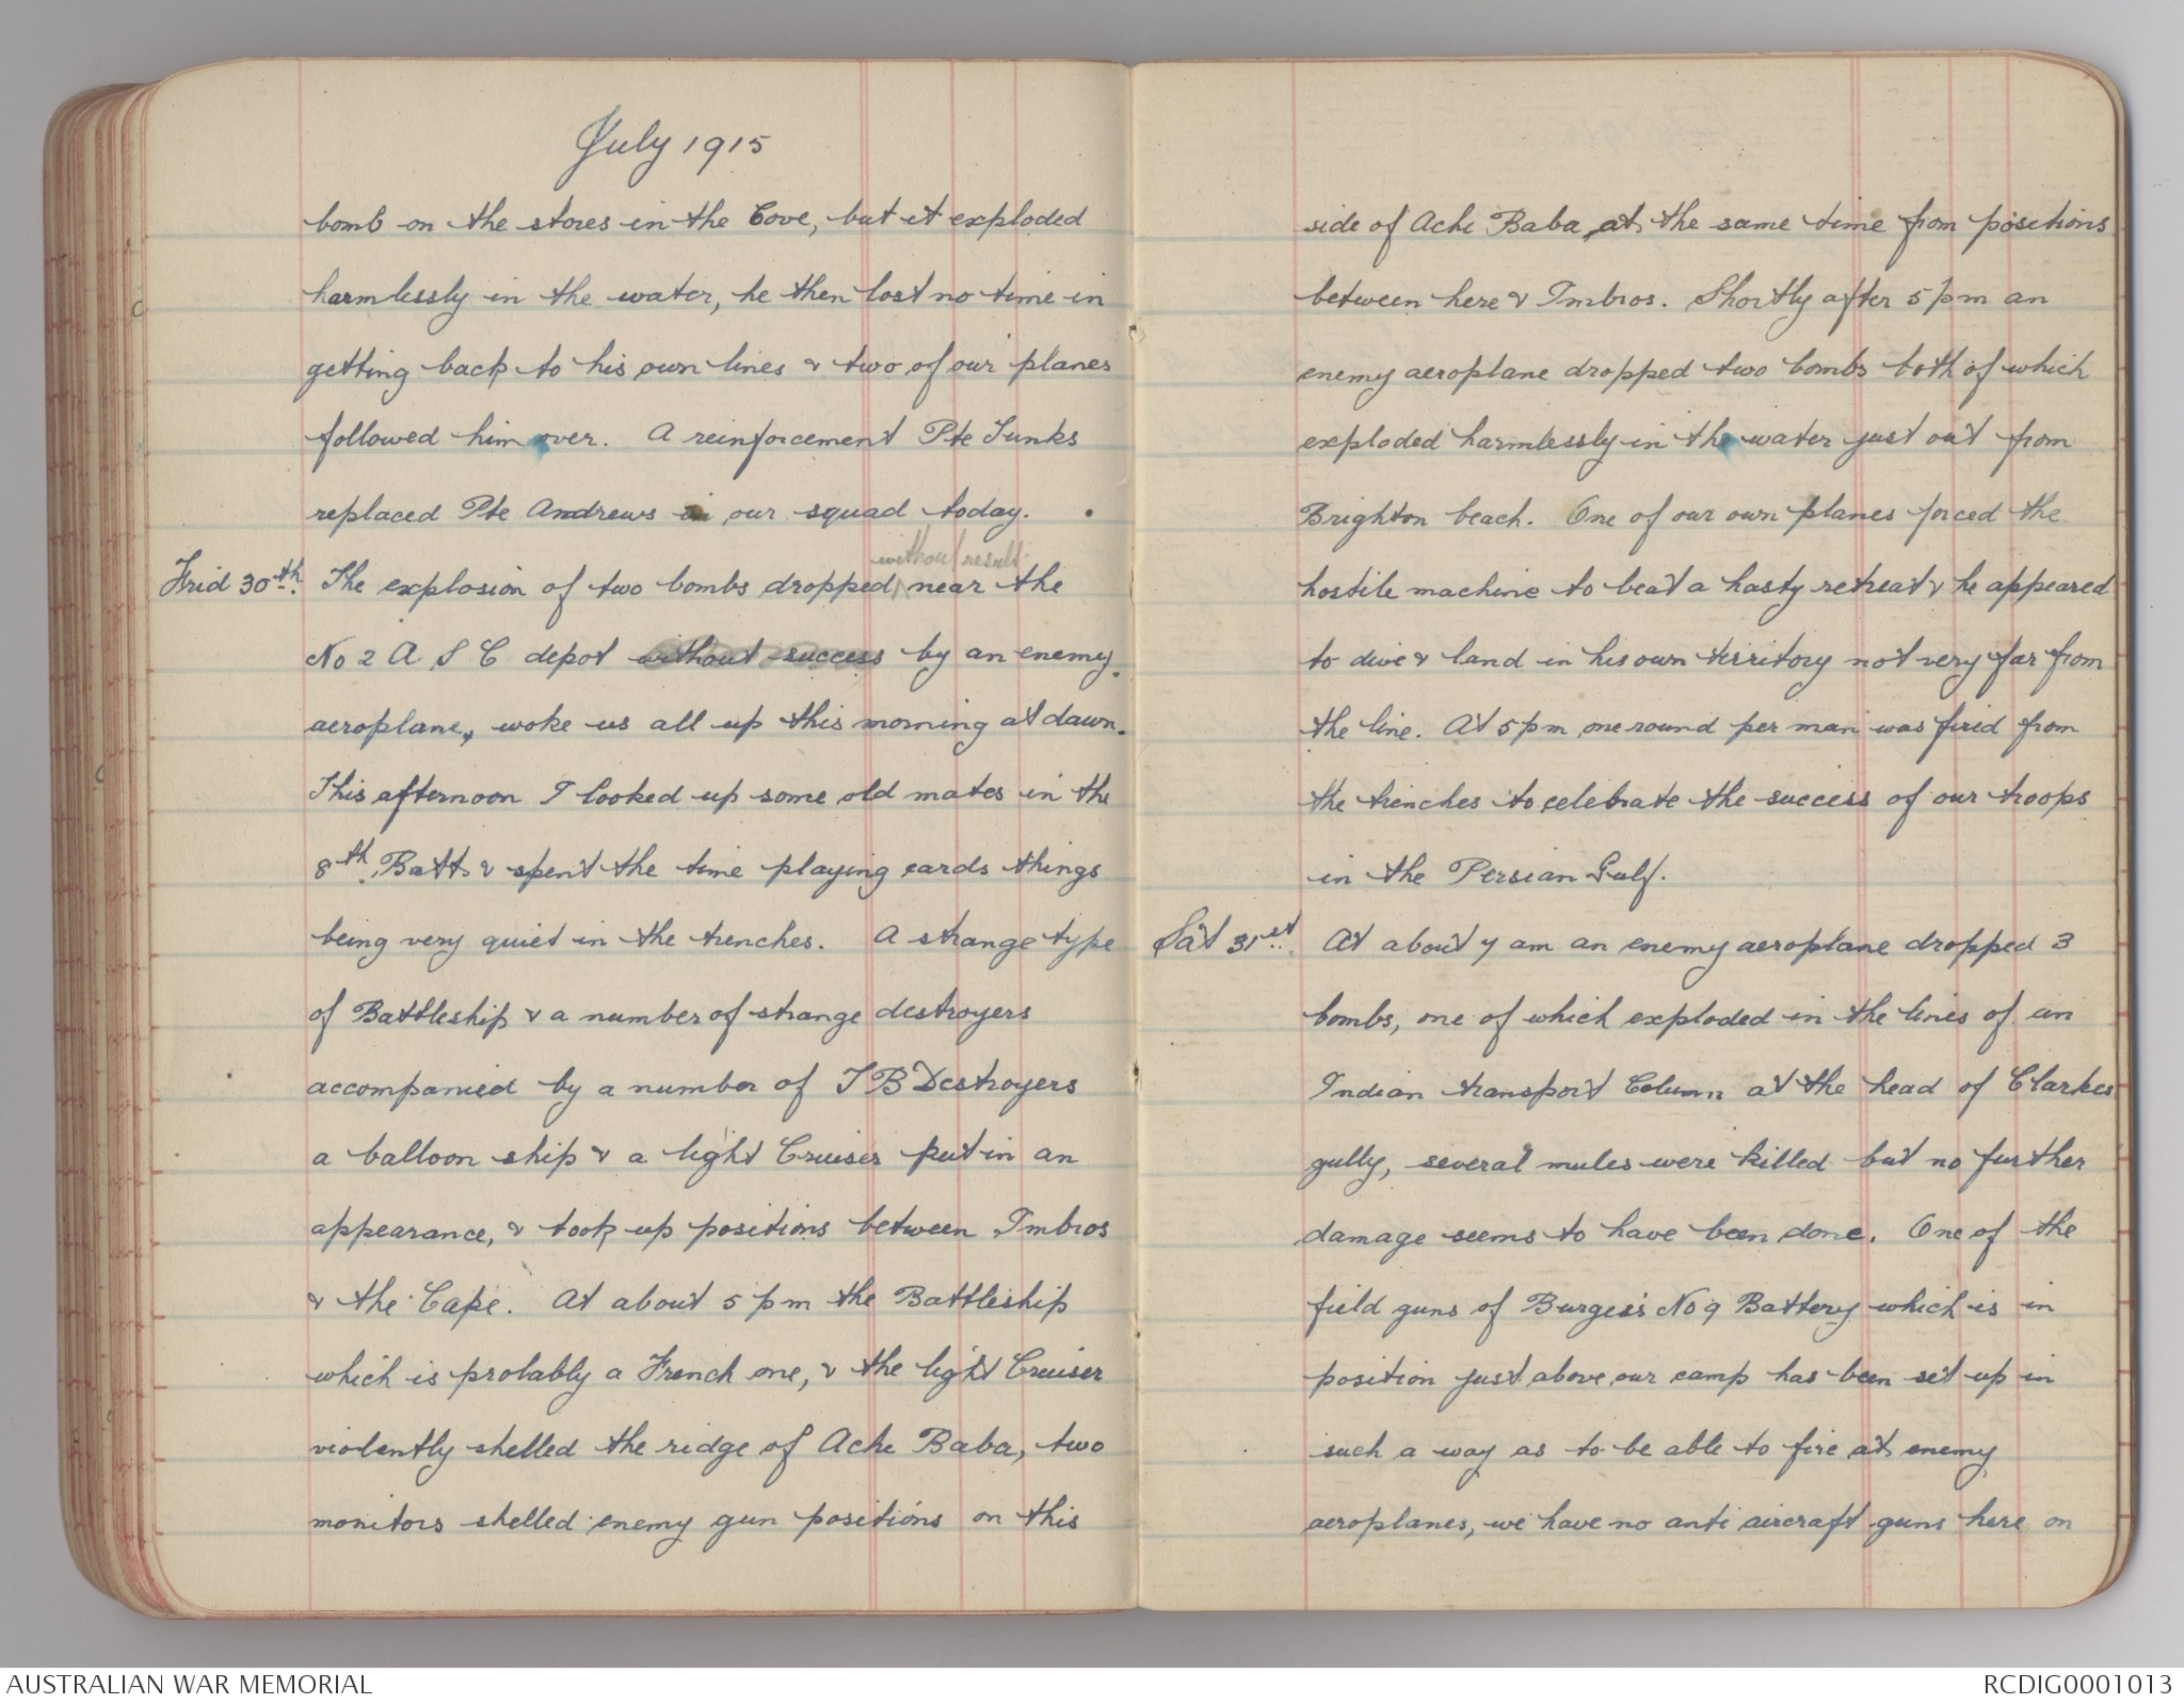 July 1915
bomb on the stores in the Cove, but it exploded
harmlessly in the water, he then lost no time in
getting back to his own lines & two of our planes
followed him over. A reinforcement Pte Tunks
replaced Pte Andrews in our squad today.
without result
Frid 30th. The explosion of two bombs dropped near the
No 2 A S C depot without success by an enemy
aeroplane, woke us all up this morning at dawn.
This afternoon I looked up some old mates in the
8th Batt. & spent the time playing cards things
being very quiet in the trenches. A strange type
of Battleship & a number of strange destroyers
accompanied by a number of T B Destroyers
a balloon ship & a light Cruiser put in an
appearance, & took up positions between Imbros
& the Cape. At about 5 pm the Battleship
which is probably a French one, & the light Cruiser
violently shelled the ridge of Achi Baba, two
monitors shelled enemy gun positions on this
side of Achi Baba at the same time from positions
between here & Imbros. Shortly after 5 pm an
enemy aeroplane dropped two bombs both of which
exploded harmlessly in the water just out from
Brighton beach. One of our own planes forced the
hostile machine to beat a hasty retreat & he appeared
to dive & land in his own territory not very far from
the line. At 5 pm one round per man was fired from
the trenches to celebrate the success of our troops
in the Persian Gulf.
Sat 31st. At about 7 am an enemy aeroplane dropped 3
bombs, one of which exploded in the lines of an
Indian transport Column at the head of Clarkes
gully, several mules were killed but no further
damage seems to have been done. One of the
field guns of Burgess's No 9 Battery which is in
position just above our camp has been set up in
such a way as to be able to fire at enemy
aeroplanes, we have no anti aircraft guns here on
AUSTRALIAN WAR MEMORIAL
RCDIG0001013